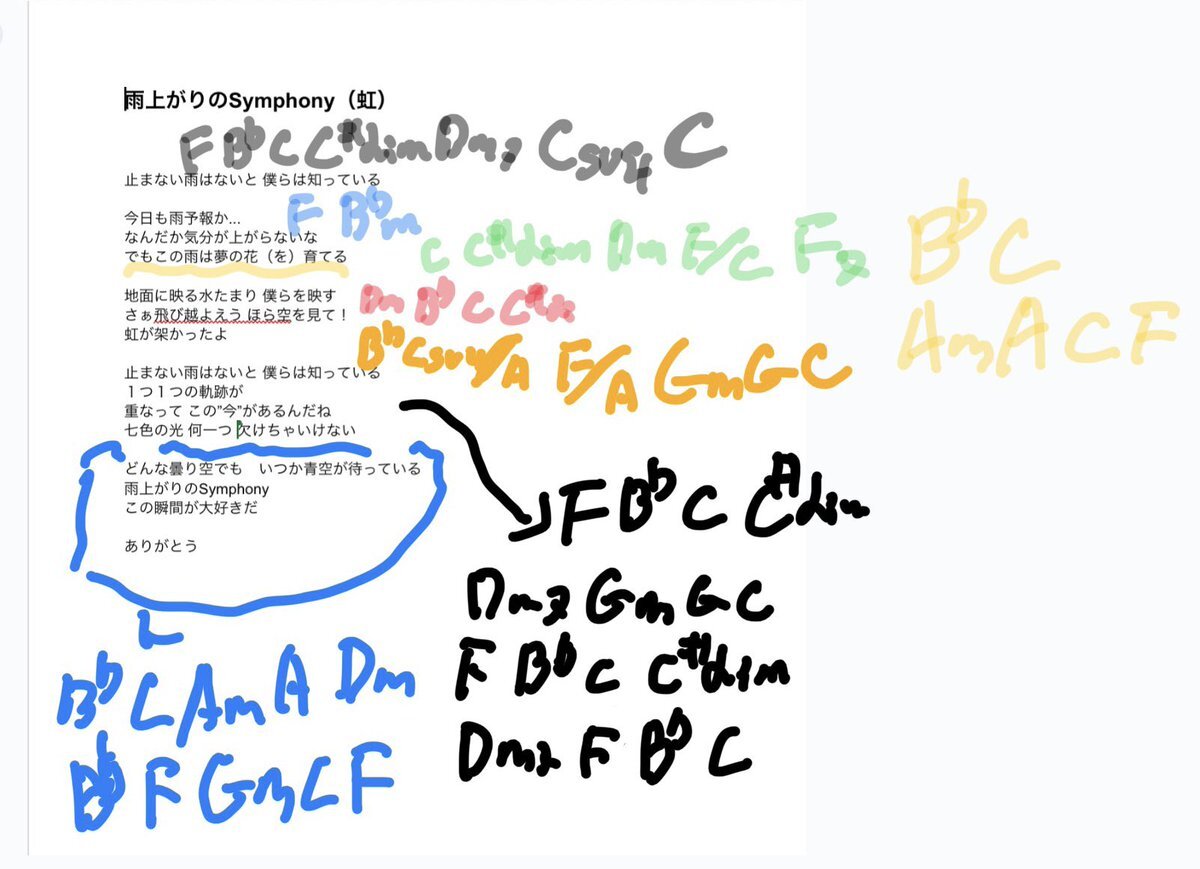 雨上がりのSymphony（虹）
F B♭ C C#dim Dm7 Csus4 C
止まない雨はないと 僕らは知っている
今日も雨予報か...
F B♭m
なんだか気分が上がらないな
C C#dim Dm F/C F7
B♭ C
でもこの雨は夢の花（を）育てる
地面に映る水たまり 僕らを映す
Dm B♭ C
さぁ飛び越よえう ほら空を見て！
Am A C F
虹が架かったよ
B♭ Csus4/A F/A Gm G C
止まない雨はないと 僕らは知っている
１つ１つの軌跡が
重なって この”今”があるんだね
七色の光 何一つ 欠けちゃいけない
どんな曇り空でも　いつか青空が待っている
雨上がりのSymphony
この瞬間が大好きだ
ありがとう
F B♭ C C#dim
Dm7 Gm G C
F B♭ C C#dim
Dm7 F B♭ C
B♭ C Am A Dm
B♭ F Gm C F